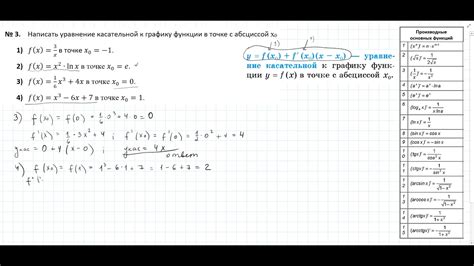 № 3. Написать уравнение касательной к графику функции в точке с абсциссой x₀
1) f(x) = 3/x в точке x₀ = −1.
2) f(x) = x² · ln x в точке x₀ = e.
3) f(x) = 1/6 x³ + 4x в точке x₀ = 0.
4) f(x) = x³ − 6x + 7 в точке x₀ = 1.
y = f(x₀) + f′(x₀)(x − x₀) — уравне-
ние касательной к графику функ-
ции y = f(x) в точке с абсциссой x₀.
3) f(x₀) = f(0) = 1/6 · 0³ + 4 · 0 = 0
f′(x) = 1/6 · 3x² + 4 ; f′(x₀) = f′(0) = 1/2 · 0² + 4 = 4
yкас = 0 + 4(x − 0) ; yкас = 4x
ответ
4) f(x₀) = f(1) = 1³ − 6·1 + 7 = 1 − 6 + 7 = 2
f′(
Производные
основных функций
1 (xⁿ)′ = n · xⁿ⁻¹
2 (√x)′ = 1/(2√x)
3 (1/x)′ = −1/x²
4 (aˣ)′ = aˣ · ln a
5 (eˣ)′ = eˣ